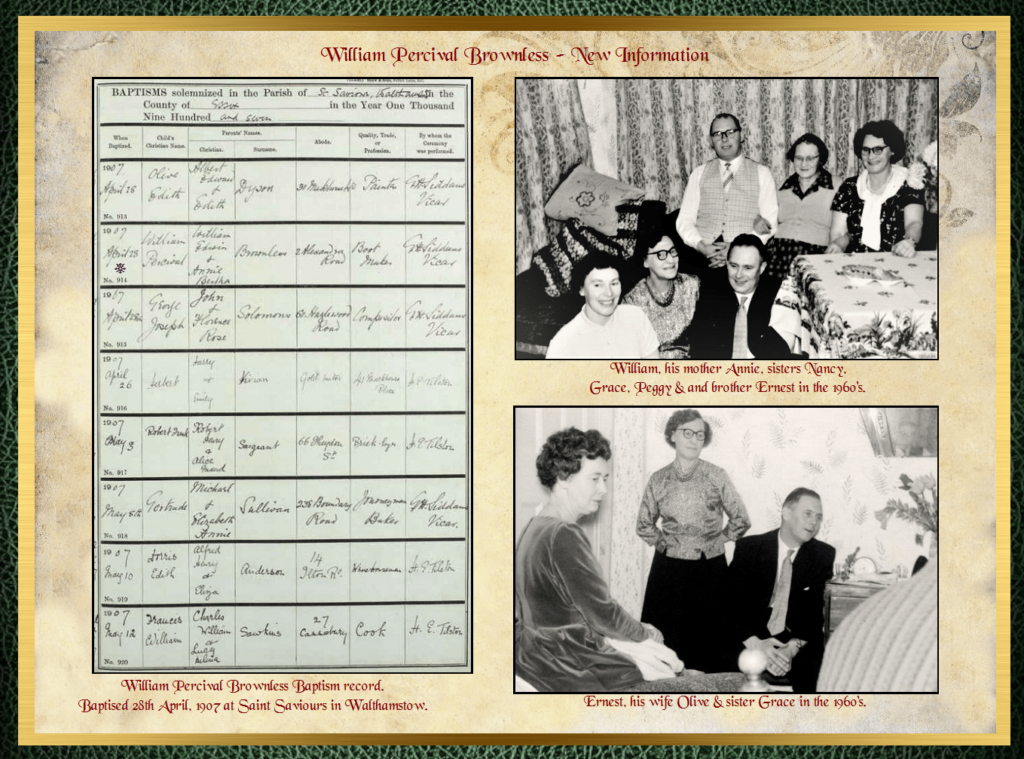 William Percival Brownless - New Information
BAPTISMS solemnized in the Parish of St Saviours, Walthamstow in the
County of Essex in the Year One Thousand
Nine Hundred and seven
When Baptized.
Child's Christian Name.
Parents' Names.
Christian.
Surname.
Abode.
Quality, Trade, or Profession.
By whom the Ceremony was performed.
1907 April 28 No. 913
Olive Edith
Albert Edward & Edith
Dyson
Painter
G H Siddans Vicar
1907 April 28 No. 914
William Percival
William Edwin & Annie Bertha
Brownless
2 Alexandra Road
Boot Maker
G H Siddans Vicar
1907 April 28 No. 915
George Joseph
John & Florence Rose
Solomons
Hazlewood Road
Compositor
G H Siddans Vicar
1907 April 26 No. 916
Herbert
Harry & Emily
Vivian
H E Tilston
1907 May 3 No. 917
Robert Frank
Robert Henry & Alice Maud
Sargeant
66 St
Brick-lyr
H E Tilston
1907 May 8th No. 918
Gertrude
Michael & Elizabeth Annie
Sullivan
238 Boundary Road
Journeyman Baker
G H Siddans Vicar.
1907 May 10 No. 919
Dorris Edith
Alfred Henry & Eliza
Anderson
14 Ilton Rd.
Warehouseman
H. E. Tilston
1907 May 12 No. 920
Frances William
Charles William & Lucy
Sawkins
27
Cook
H. E. Tilston
William Percival Brownless Baptism record.
Baptised 28th April, 1907 at Saint Saviours in Walthamstow.
William, his mother Annie, sisters Nancy,
Grace, Peggy & and brother Ernest in the 1960's.
Ernest, his wife Olive & sister Grace in the 1960's.